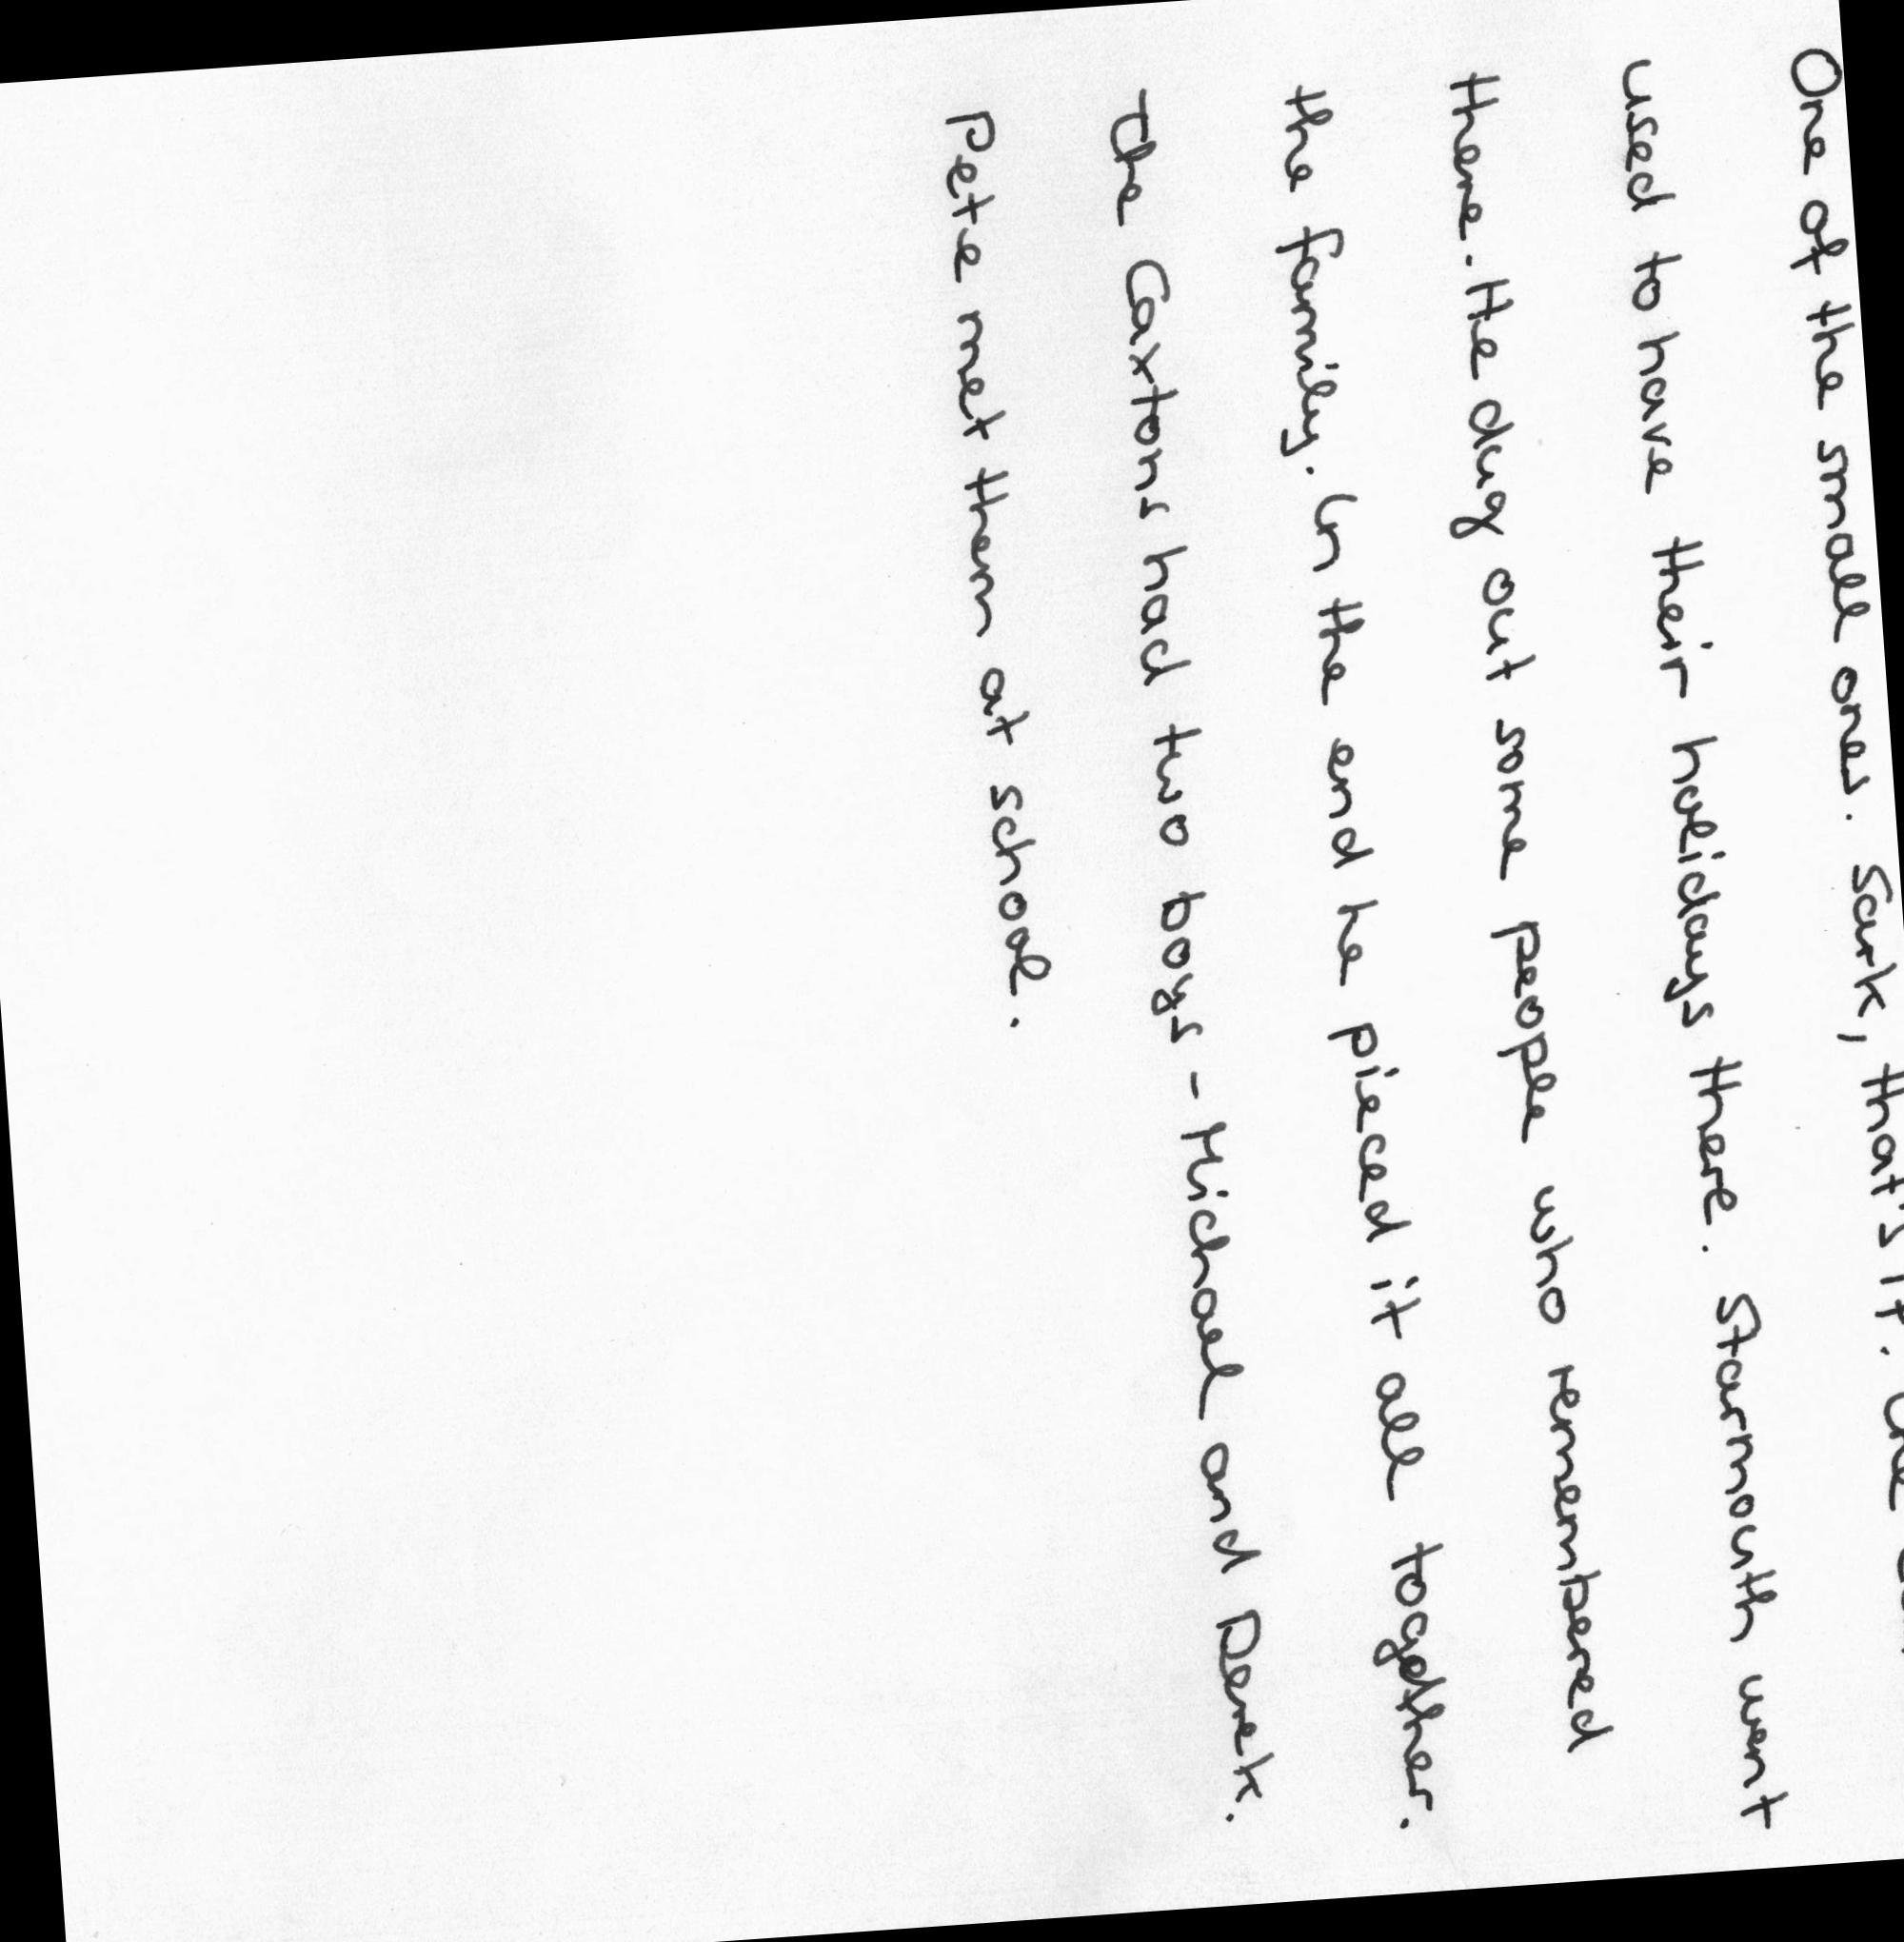 One of the small ones. Sark, that's it. The
used to have their holidays there. Starmouth went
there. He dug out some people who remembered
the family. In the end he pieced it all together.
The Caxtons had two boys - Michael and Derek.
Pete met them at school.